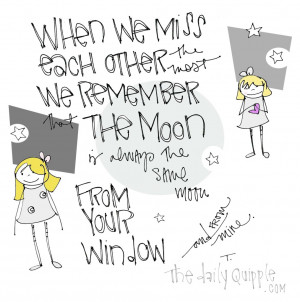 WHEN WE MISS
EACH OTHER the most
WE REMEMBER
that THE MOON
is always the
same moon
FROM
YOUR
WINDOW
and FROM
mine.
The daily Quipple
.COM